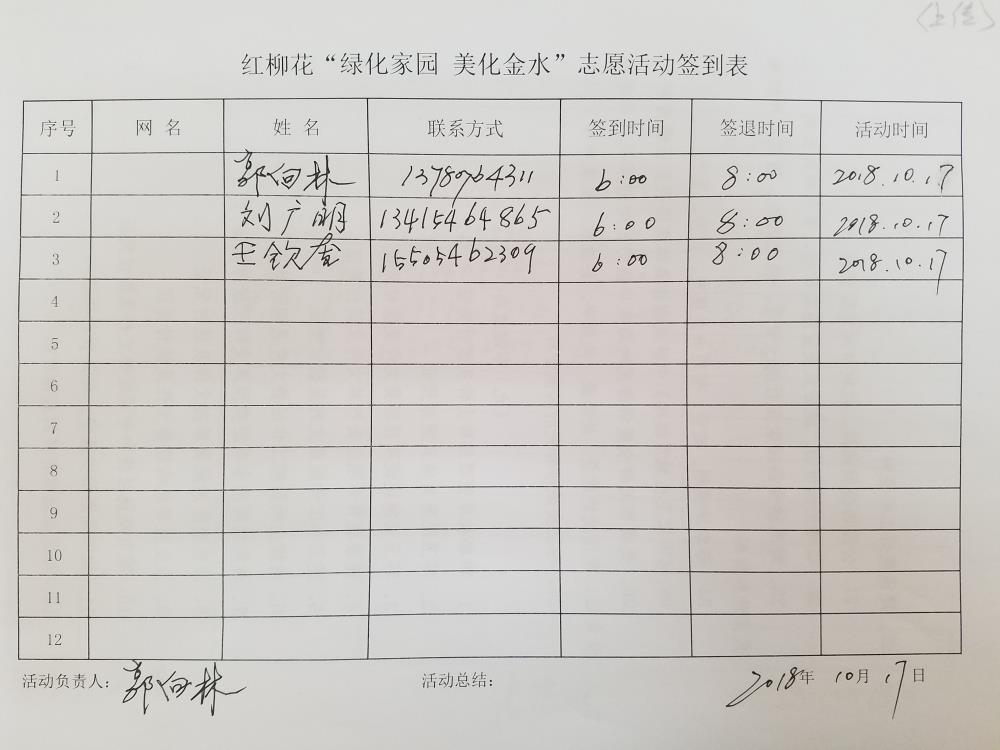 〈上传〉
红柳花“绿化家园 美化金水”志愿活动签到表
序号 网名 姓名 联系方式 签到时间 签退时间 活动时间
1 郭向林 13780764311 6:00 8:00 2018.10.17
2 刘广明 13415464865 6:00 8:00 2018.10.17
3 王钦奎 15505462309 6:00 8:00 2018.10.17
4
5
6
7
8
9
10
11
12
活动负责人: 郭向林 活动总结: 2018年 10月 17日